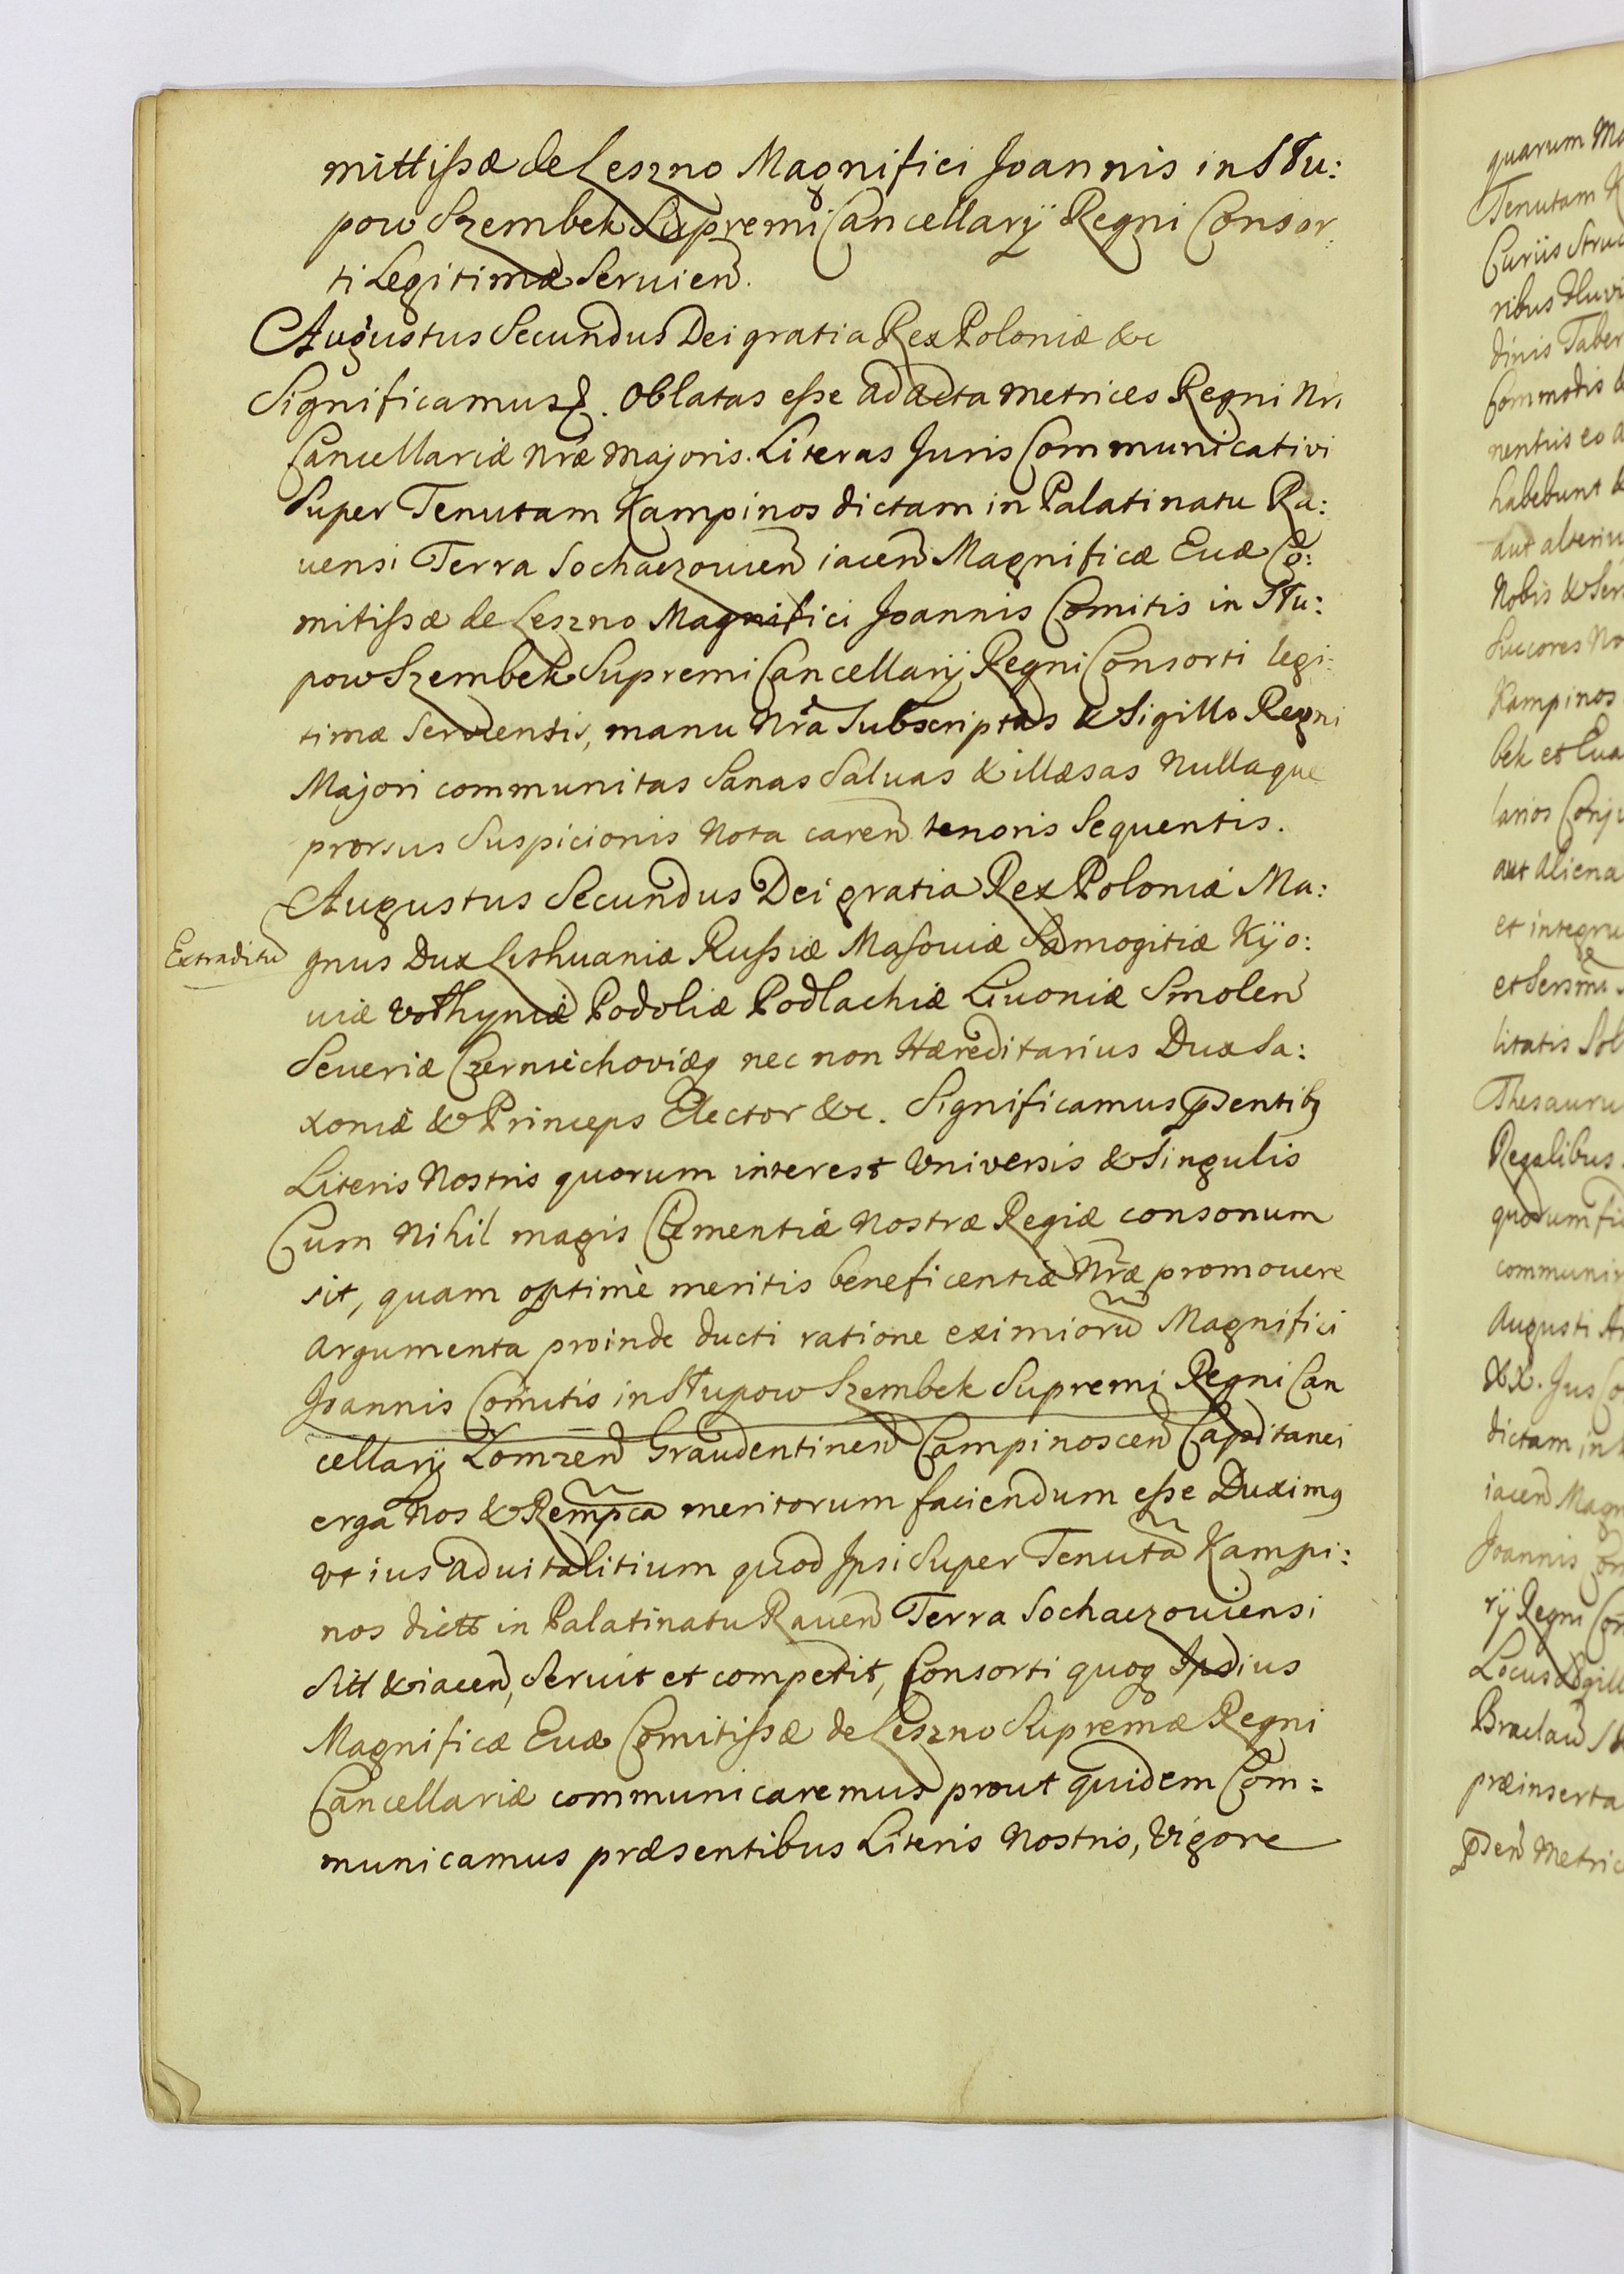 mittissæ de Leszno Magnifici Joannis in Słu:
pow Szembek Supremi Cancellarÿ Regni Consor:
ti Legitimæ Seruien̄.
Augustus Secundus Dei gratia Rex Poloniæ &c
Significamus &. Oblatas esse ad acta metrices Regni Nri
Cancellariæ Nræ Majoris. Literas Juris Communicativi
Super Tenutam Kampinos dictam in Palatinatu Ra:
uensi Terra Sochaczouien̄ iacen̄ Magnificæ Euæ Co:
mitissæ de Leszno Magnifici Joannis Comitis in Słu:
pow Szembek Supremi Cancellarÿ Regni Consorti legi:
timæ Servientis, manu Nrā Subscriptas & Sigillo Regni
Majori communitas Sanas Saluas & illæsas Nullaque
prorsus Suspicionis Nota caren̄ tenoris Sequentis.
Augustus Secundus Dei gratia Rex Poloniæ Ma:
Extraditū
gnus Dux Lithuaniæ Russiæ Masouiæ Samogitiæ Kÿo:
uiæ Volhyniæ Podoliæ Podlachiæ Liuoniæ Smolen̄
Seueriæ Czerniechoviæq nec non Hæreditarius Dux Sa:
xoniæ & Princeps Elector &c. Significamus p̄sentibq
Literis Nostris quorum interest Vniversis & Singulis
Cum Nihil magis Clementiæ Nostræ Regiæ consonum
sit, quam optimè meritis beneficentiæ Nræ promouere
argumenta proinde ducti ratione eximiorū Magnifici
Joannis Comitis in Słupow Szembek Supremi Regni Can
cellarÿ Łomzen̄ Graudentinen̄ Campinoscen̄ Capitanei
erga Nos & Rempcā meritorum faciendum esse Duximq
vt ius aduitalitium quod Ipsi Super Tenutā Kampi:
nos dict in Palatinatu Rauen̄ Terra Sochaczouiensi
Sit & iacen̄, Seruit et competit, Consorti quoq Ipsius
Magnificæ Euæ Comitissæ de Leszno Supremæ Regni
Cancellariæ communicaremus prout quidem Com:
municamus præsentibus Literis Nostris, Vigore
quarum
Tenutam
Curiis
ribus
dinis
Commodis
nentiis eo
habebunt
aut
Nobis &
Kampinos
bek et Eua
larios
aut aliena
et
litatis
Thesauru
Regalibus
quorum
communi
Augusti
XX. Jus
dictam in
iacen̄ Magn
Joannis
rÿ Regni
Locus
Braclau
præinserta
Metri